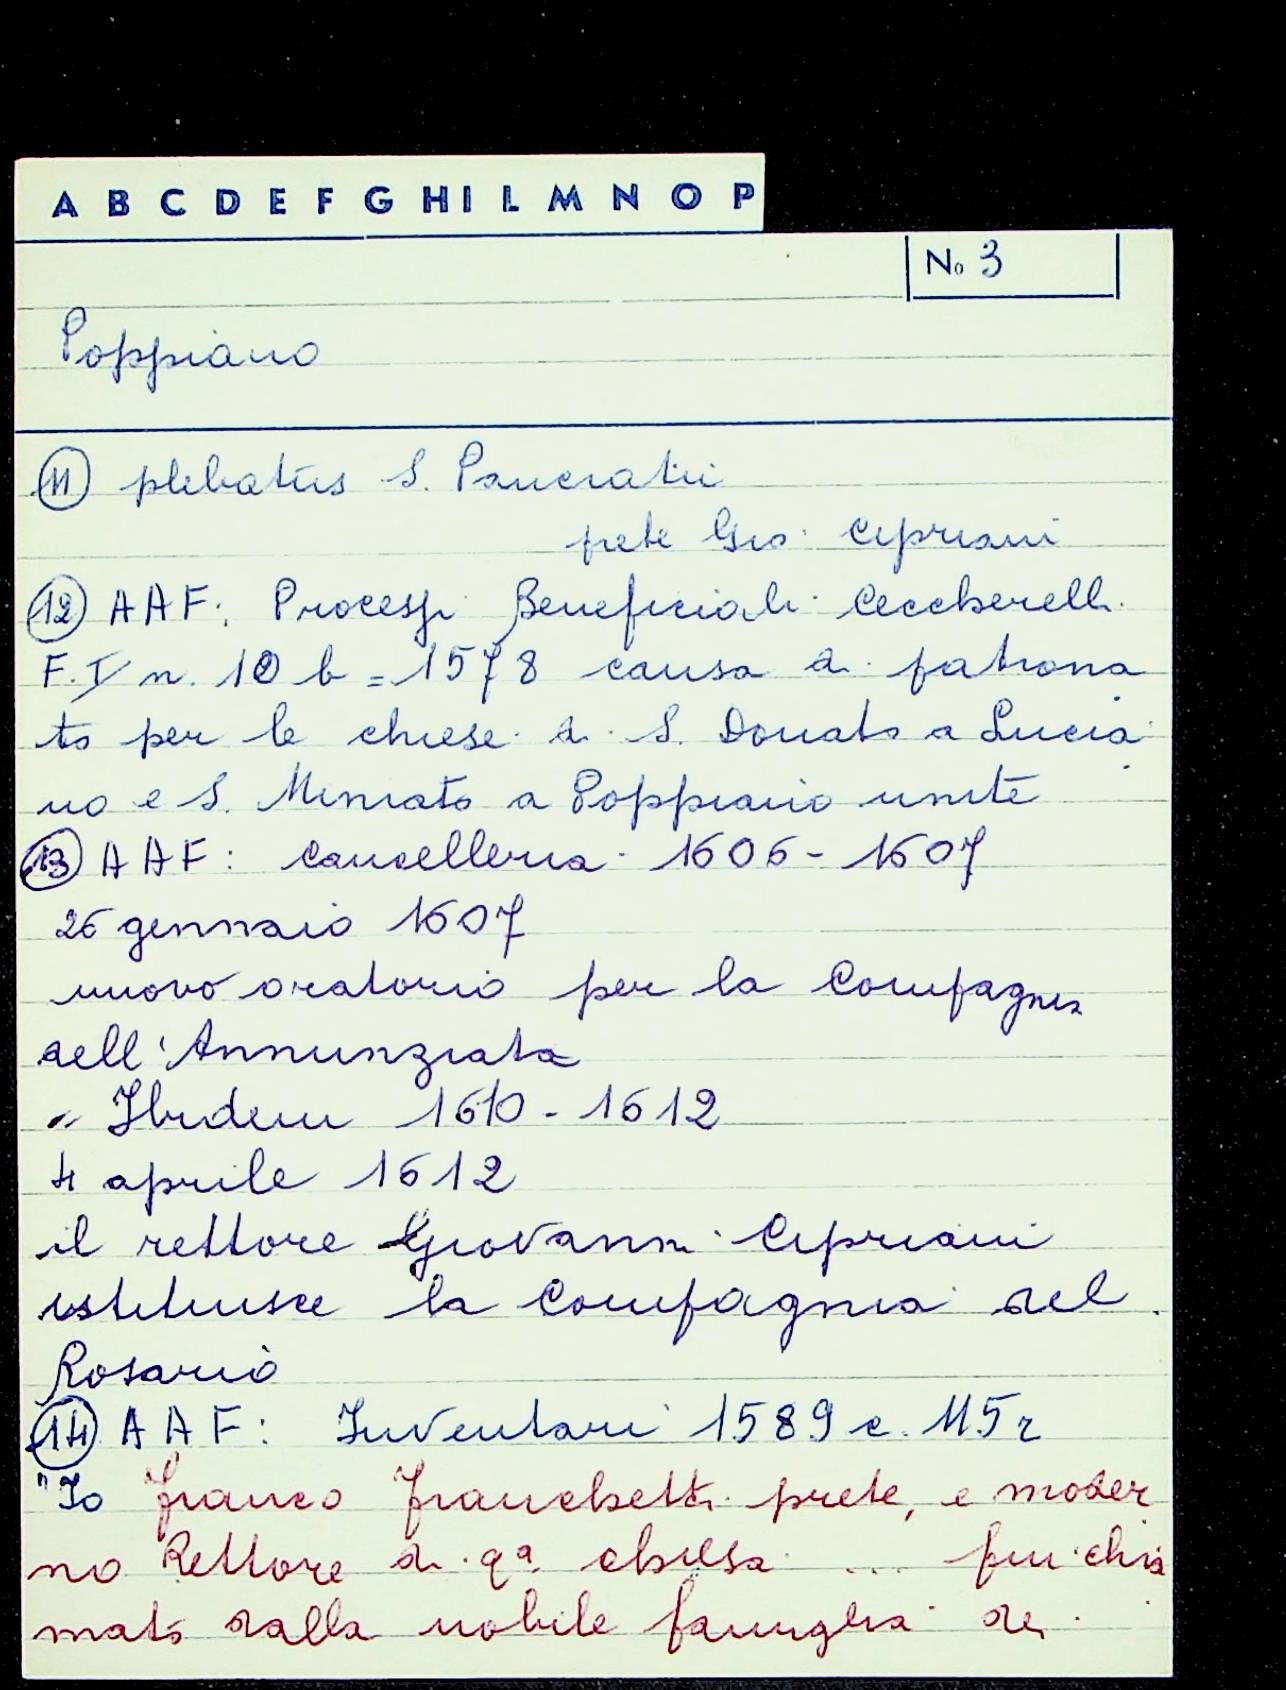 A B C D E F G H I L M N O P
No 3
Poppiano
11 plebatus S. Pancratii
prete Gio. Cipriani
12 AAF: Processi Beneficiali Ceccherelli
F. IV n. 10 b = 1578 causa di patrona
to per le chiese di S. Donato a Lucia
no e S. Miniato a Poppiano unite
13 AAF: Cancelleria 1606-1607
26 gennaio 1607
nuovo oratorio per la Compagnia
dell'Annunziata
" Ibidem 1610-1612
4 aprile 1612
il rettore Giovanni Cipriani
istituisce la Compagnia del
Rosario
14 AAF: Inventari 1589 c. 115r
"Io franco franchetti prete, e moder
no Rettore di qa chiesa ... fui chia
mato dalla nobile famiglia de